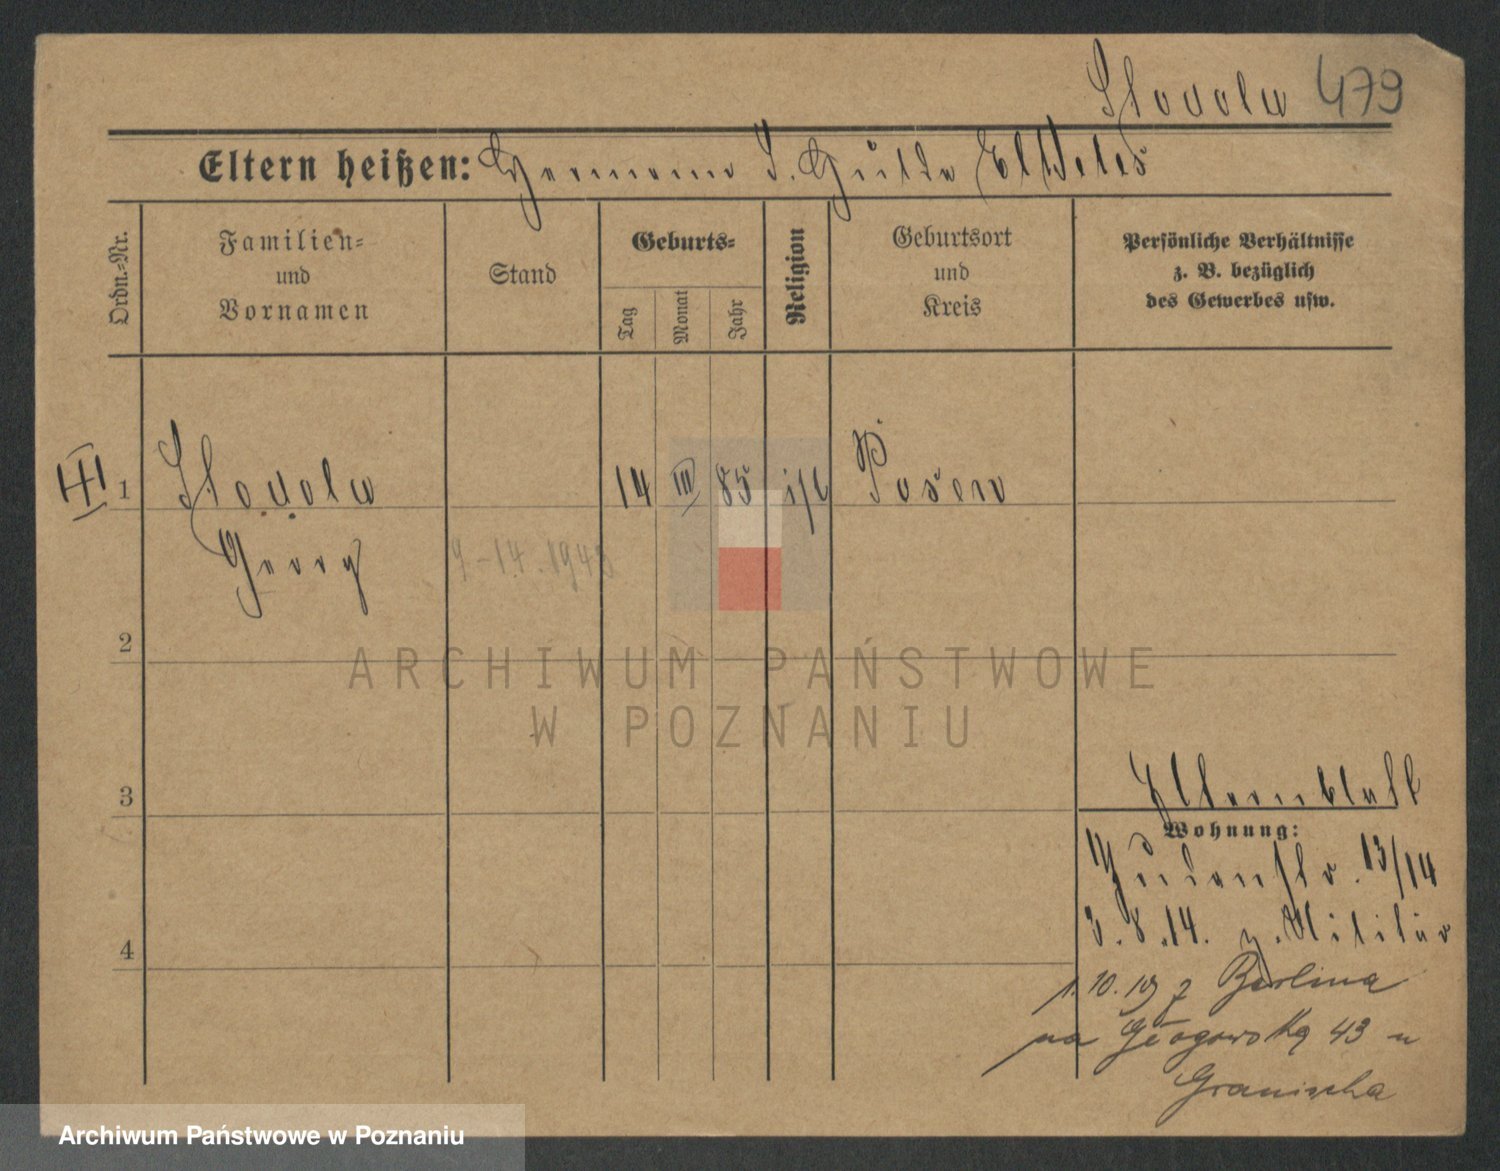 Stodola 479
Eltern heißen: Hermann S. Hulda Elkeles
Ordn.-Nr.
Familien- und Vornamen
Stand
Geburts-
Tag
Monat
Jahr
Religion
Geburtsort und Kreis
Persönliche Verhältnisse
z. B. bezüglich
des Gewerbes usw.
III 1 Stodola 14 III 85 isr Posen
Georg
9-14.1943
2
3
4
Elternblatt
Wohnung:
Judenstr. 13/14
3.8.14. z. Militär
1.10.19 z Berlina
na 43 u
ARCHIWUM PAŃSTWOWE
W POZNANIU
Archiwum Państwowe w Poznaniu